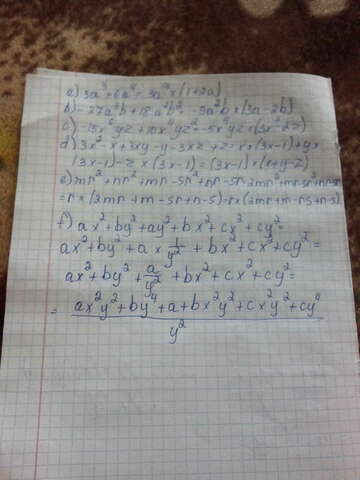 a) 3a³+6a⁴=3a³×(1+2a)
b) -27a³b+18a²b²=-9a²b×(3a-2b)
c) -15x⁶yz+10x⁴yz²=-5x⁴yz×(3x²-2z)
d) 3x²-x+3xy-y-3xz+z=x×(3x-1)+y×
(3x-1)-z×(3x-1)=(3x-1)×(x+y-z)
e) mn²+nr²+mr-5r²+nr-5r=2mr²+mr-5r²+nr-5r
=r×(2mr+m-5r+n-5)=r×(2mr+m-r5+n-5)
f) ax²+by²+ay²+bx²+cx²+cy²=
ax²+by²+a×1/y²+bx²+cx²+cy²=
ax²+by²+a/y²+bx²+cx²+cy²=
= ax²y²+by⁴+a+bx²y²+cx²y²+cy⁴
y²